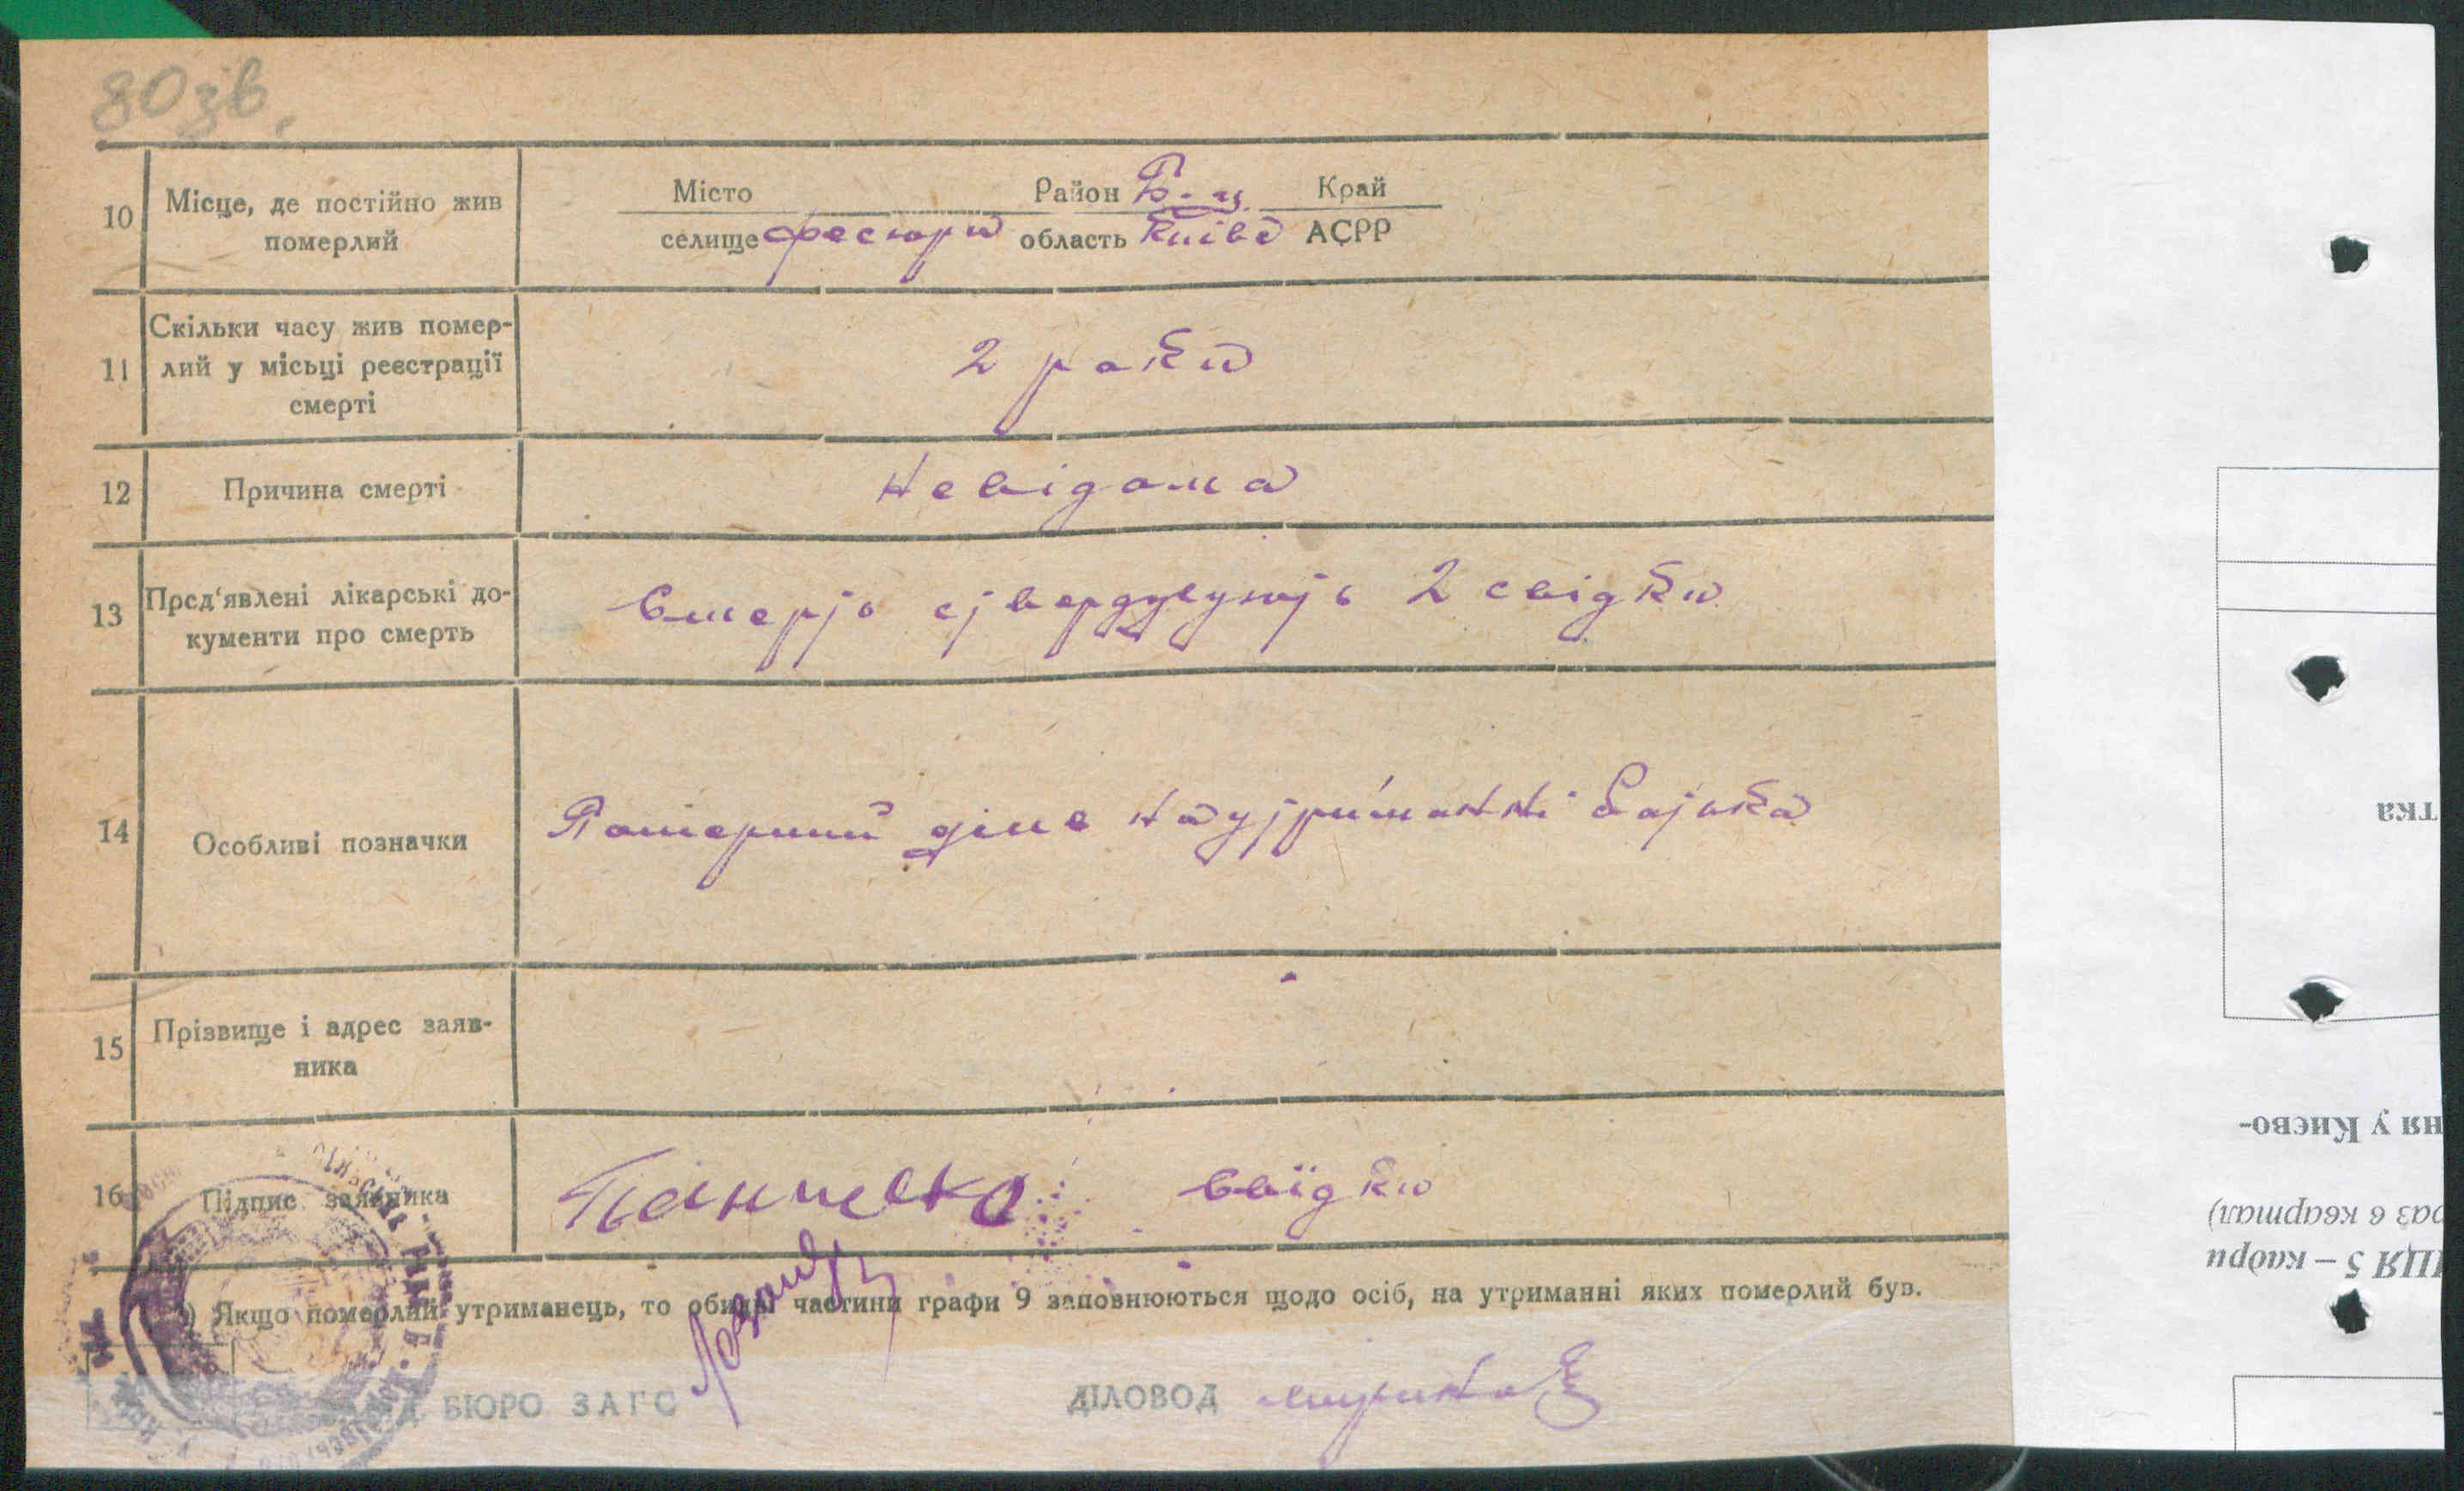 80зв.
10 Місце, де постійно жив померлий
Місто Район Б.-ц. Край
селище Фесюри область Київс АСРР
11 Скільки часу жив помер-
лий у місьці реєстрації
смерті
2 роки
12 Причина смерті
Невідома
13 Пред'явлені лікарські до-
кументи про смерть
Смерть стверджують 2 свідки
14 Особливі позначки
Померший на утриманні батька
15 Прізвище і адрес заяв-
ника
16 Підпис заявника
свідки
) Якщо померлий утриманець, то обидві частини графи 9 заповнюються щодо осіб, на утриманні яких померлий був.
БЮРО ЗАГС
ДІЛОВОД
тка
ня у Києво-
раз в квартал)
ЦЯ 5 – кадри